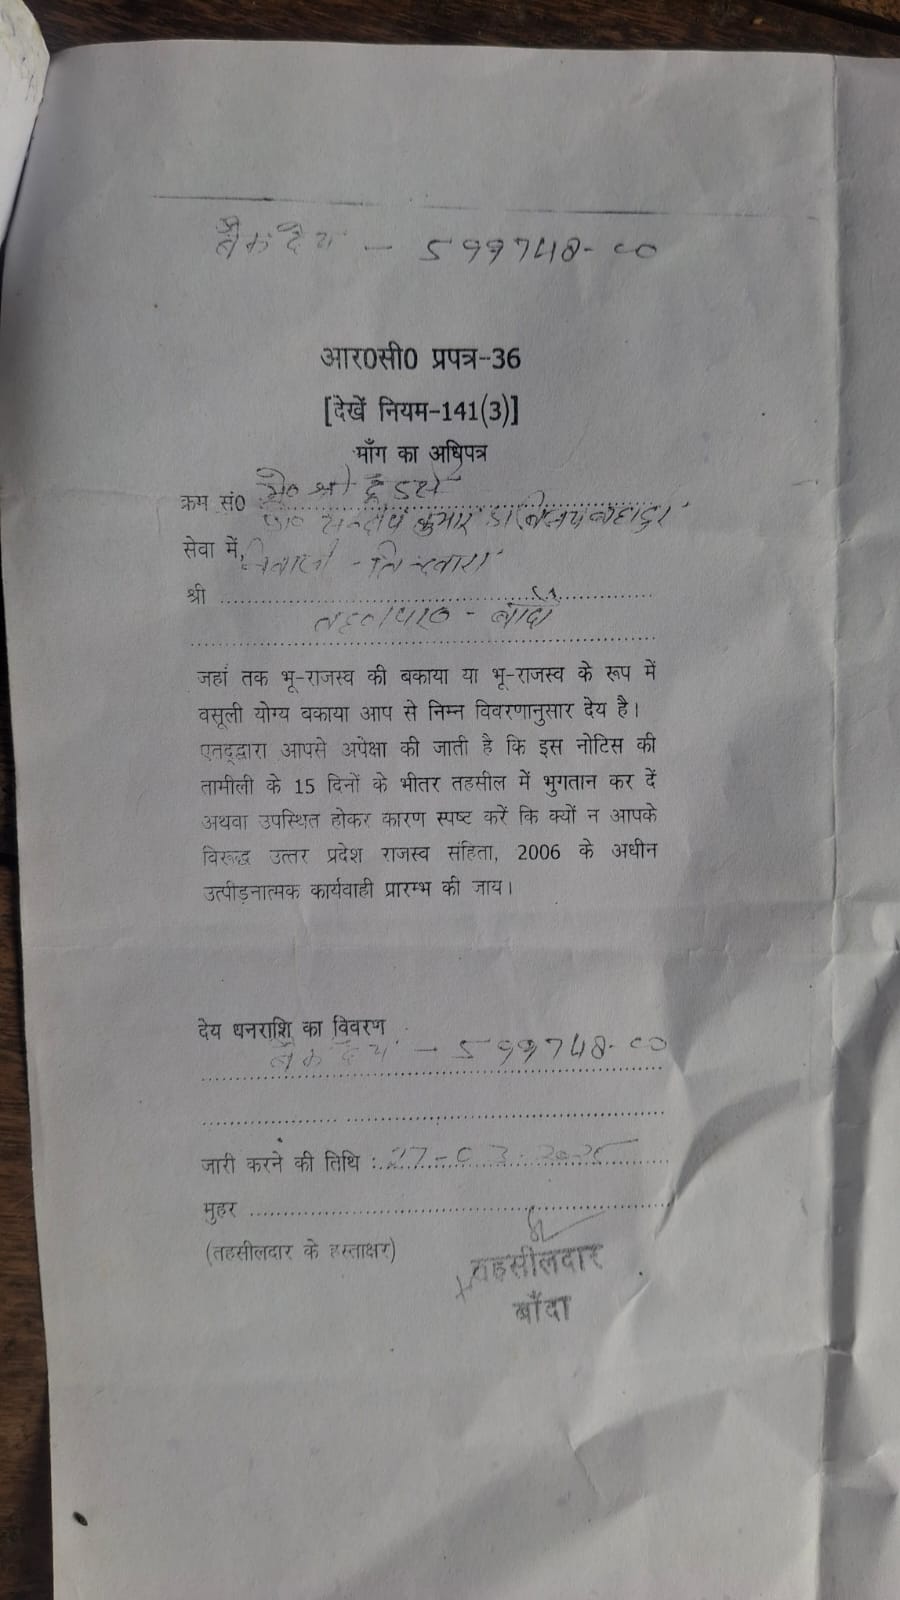 बैंक देय - 599748-00
आर0सी0 प्रपत्र-36
[देखें नियम-141(3)]
माँग का अधिपत्र
क्रम सं0 मे0 श्री
प्रो0 सन्दीप कुमार S/o विजय बहादुर
सेवा में,
निवासी - तिन्दवारा
श्री
तह0 व जि0 - बाँदा
जहां तक भू-राजस्व की बकाया या भू-राजस्व के रूप में
वसूली योग्य बकाया आप से निम्न विवरणानुसार देय है।
एतद्द्वारा आपसे अपेक्षा की जाती है कि इस नोटिस की
तामीली के 15 दिनों के भीतर तहसील में भुगतान कर दें
अथवा उपस्थित होकर कारण स्पष्ट करें कि क्यों न आपके
विरूद्ध उत्तर प्रदेश राजस्व संहिता, 2006 के अधीन
उत्पीड़नात्मक कार्यवाही प्रारम्भ की जाय।
देय धनराशि का विवरण
बैंक देय - 599748-00
जारी करने की तिथि : 27-03-2025
मुहर
(तहसीलदार के हस्ताक्षर)
तहसीलदार
बाँदा